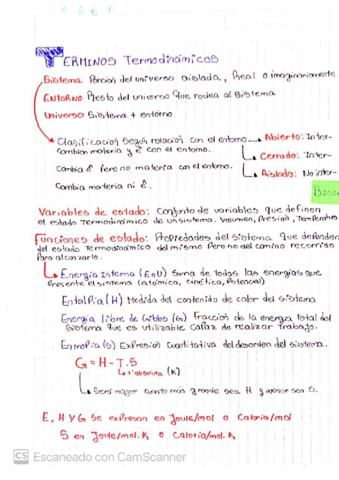 TERMINOS Termodinámicos
Sistema Porción del universo aislada, Real o imaginariamente
ENTORNO Resto del universo que rodea al sistema
Universo Sistema + entorno
Clasificación según relación con el entorno Abierto: Inter-
cambian materia y E con el entorno.
Cerrado: Inter-
cambia E pero no materia con el entorno.
Aislado: No inter-
cambia materia ni E.
Variables de estado: Conjunto de variables que definen
el estado termodinámico de un sistema. Volumen, Presión, Temperatura
Funciones de estado: Propiedades del sistema que dependen
del estado termodinámico del mismo pero no del camino recorrido
para alcanzarlo.
Energía Interna (E o U) Suma de todas las energías que
presente el sistema (atómica, cinética, potencial)
Entalpía (H) Medida del contenido de calor del sistema
Energía libre de Gibbs (G) Fracción de la energía total del
sistema que es utilizable capaz de realizar trabajo.
Entropía (S) Expresión cuantitativa del desorden del sistema.
G = H - T.S
T° absoluta (K)
Será mayor cuanto más grande sea H y menor sea S.
E, H y G se expresan en Joule/mol o Caloría/mol
S en Joule/mol.K o Caloría/mol.K
CS Escaneado con CamScanner